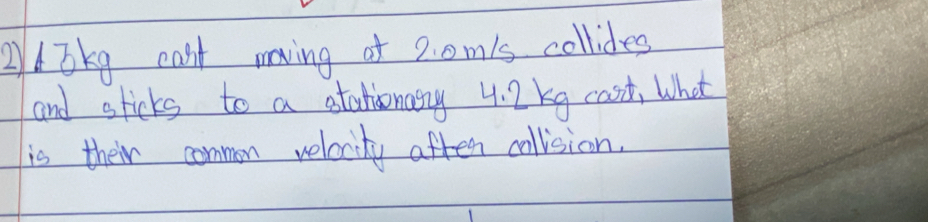 2) A 3kg cart moving at 2.0m/s collides
and sticks to a stationary 4.2 kg cart, What
is their common velocity after collision.